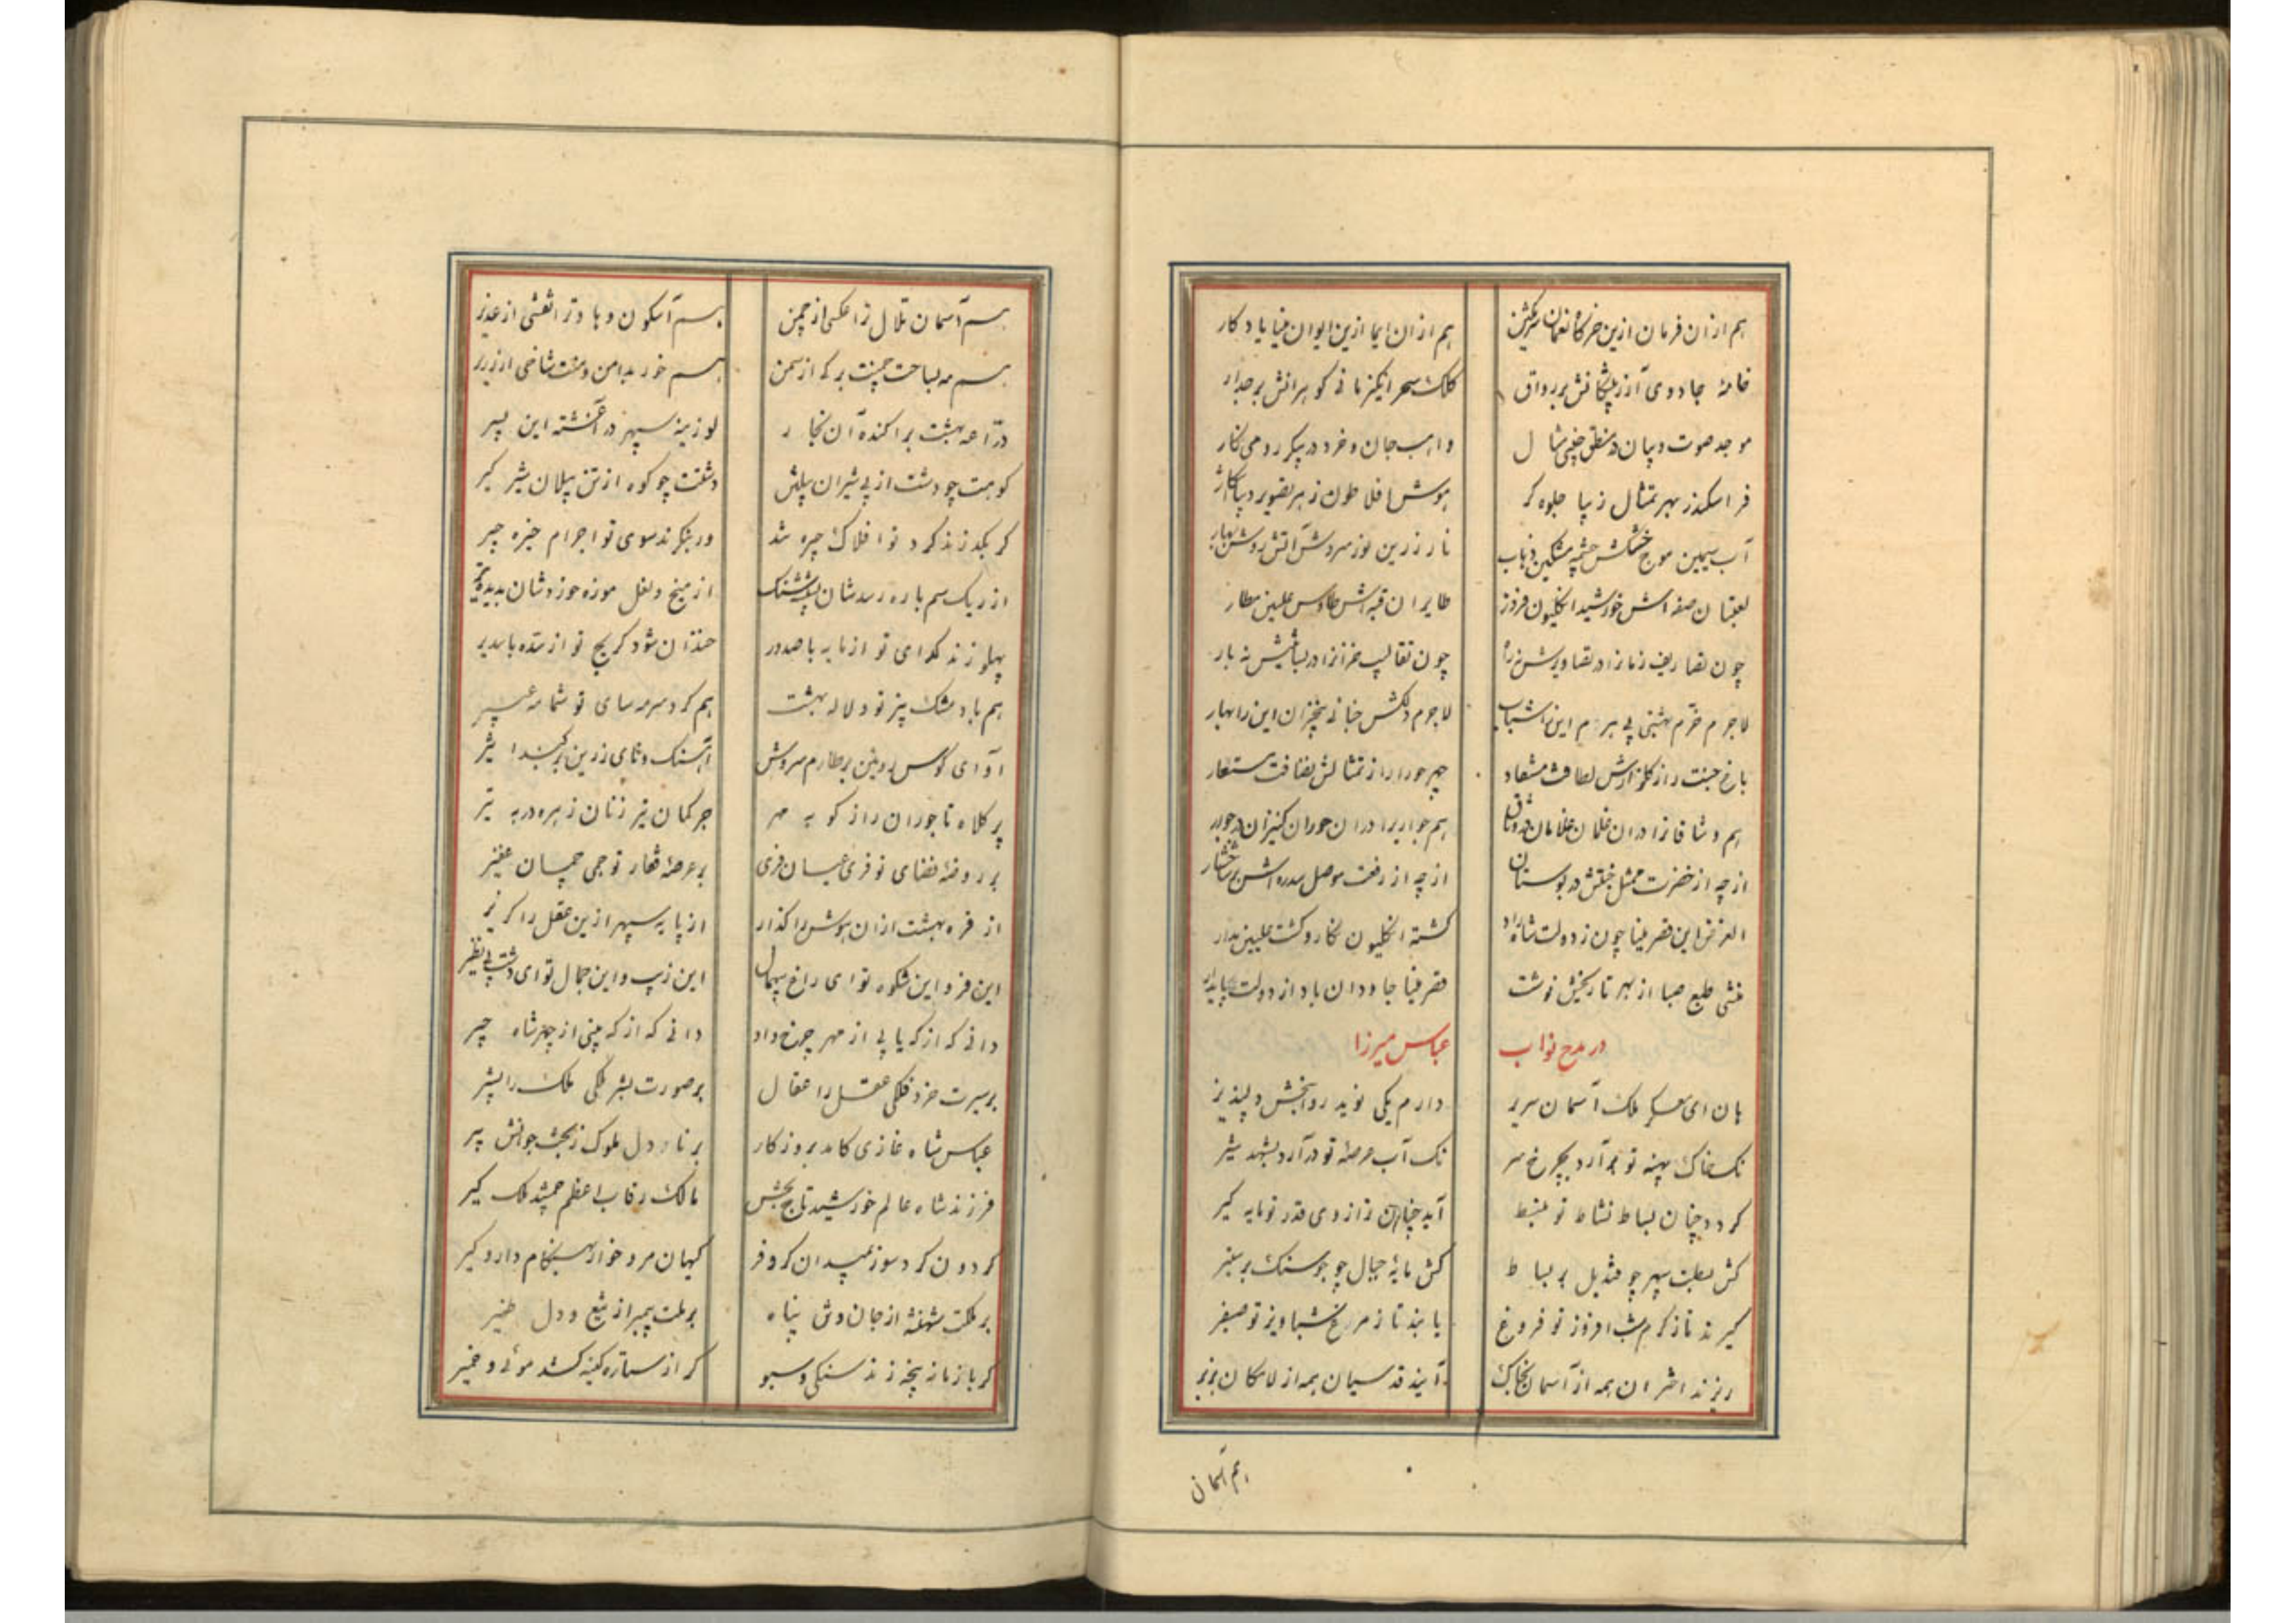 هم ازان فرمان ازین خرگاه نعمان
هم ازان ایما ازین ایوان مینا یادگار
خامهٔ جادوی آزر پیکرانش بر رواق
کلک سحر انگیز مانی گوهرانش بر جدار
موجد صوت و بیان در منطق چینی مثال
واهب جان و خرد در پیکر رومی نگار
فر اسکندر بهر تمثال زیبا جلوه گر
هوش افلاطون ز هر تصویر دیبا آشکار
آب سیمین موج چشمه مشکین ذباب
نار زرین نور سروش آتش روشن بهار
لعبتان صفه اش خورشید انگلیون فروز
طایران قبه اش طاوس علیین مطار
چون تصاریف زمانرا در تصاویرش نه راه
چون تقالیب خزانرا در بساتینش نه بار
لاجرم خرم بهشتی بی هرم این را شباب
لاجرم دلکش جنانی بی خزان این را بهار
باغ جنت را ز گلزارش لطافت مستفاد
چهر حورا را ز تمثالش نضافت مستعار
هم وشاقانرا دران غلمان غلامان در وثاق
هم جواریرا دران حوران کنیزان در جوار
از چه از خضرت ممثل جنتش در بوستان
از چه از رفعت موصل سدره اش بر شاخسار
الغرض این قصر مینا چون ز دولت شاهزاد
گشته انگلیون نگار و گشت علیین مدار
منشی طبع صبا از بهر تاریخش نوشت
قصر مینا جاودان باد از دولت پایدار
در مدح نواب
عباس میرزا
هان ای معسکر ملک آسمان سریر
دارم یکی نوید روانبخش دلپذیر
نک خاک پهنه تو بر آرد بچرخ سر
نک آب عرصهٔ تو در آرد بشهد شیر
گردد چنان بساط نشاط تو منبسط
آید چنان ترازوی قدر تو مایه گیر
کش بسلت سپهر چو قندیل بر بساط
کش مایهٔ جبال چو جوسنگ بر شعیر
گیرند تا ز کرم شب افروز تو فروغ
یابند تا ز مرغ شباویز تو صفیر
ریزند اختران همه از آسمان بخاک
آیند قدسیان همه از لامکان بزیر
هم آسمان
هم آسمان تلال ترا عکسی از چمن
هم آسکون وهاد ترا نقشی از غدیر
هم مه بساحت چمنت برگی از سمن
هم خور بدامن دمنت شاخی از زریر
دراعه بهشت براکنده آن نجار
لوزینه سپهر در آغشته این پسر
کوهت چو دشت از پی شیران پیلتن
دشتت چو کوه از تن پیلان شیرگیر
گر بگذرند گرد تو افلاک چیره شد
ور بنگرند سوی تو اجرام خیره چیر
از ریک سم باره رسدشان
از میخ و لعل موزه خوردشان بدیده تیر
پهلو زند گدای تو از مایه با صدور
خندان شود گریج تو از سده با سدیر
هم باد مشک بیز تو دلاله بهشت
هم گرد سرمه سای تو شمامه عبیر
آوای کوس رویین بر طارم سروش
آهنگ و نای زرین بر گنبد اثیر
پر کلاه تاجوران راز گو به مهر
چرخ کمان تیر زنان زهره در به تیر
بر روضهٔ فضای تو فری عیان فری
بر عرصهٔ قفار تو جمی جمان غفیر
از فره بهشت ازان هوش را گذار
از پایه سپهر ازین عقل را گزیر
این فر و این شکوه تو ای راغ بیهمال
این زیب و این جمال تو ای دشت بی نظیر
دانی که از که یابی از مهر چرخ داد
دانی که از که بینی از چتر شاه چیر
بر سیرت خرد فلکی عقل را عقال
بر صورت بشر ملکی ملک را بشر
عباس شاه غازی کامد بروزگار
برنا دل ملوک ز بخت جوانش پیر
فرزند شاه عالم خورشید تاج بخش
مالک رقاب اعظم جمشید ملک گیر
گردون گرد سوز بمیدان کر و فر
کیهان مرد خوار بهنگام دار و گیر
بر ملکت شهنشه از جان و تن پناه
بر ملت پیمبر از تیغ و دل ظهیر
گر باز ناز پنجه زند سنگی و سبو
گر از ستاره کینه کشد موئی و خمیر